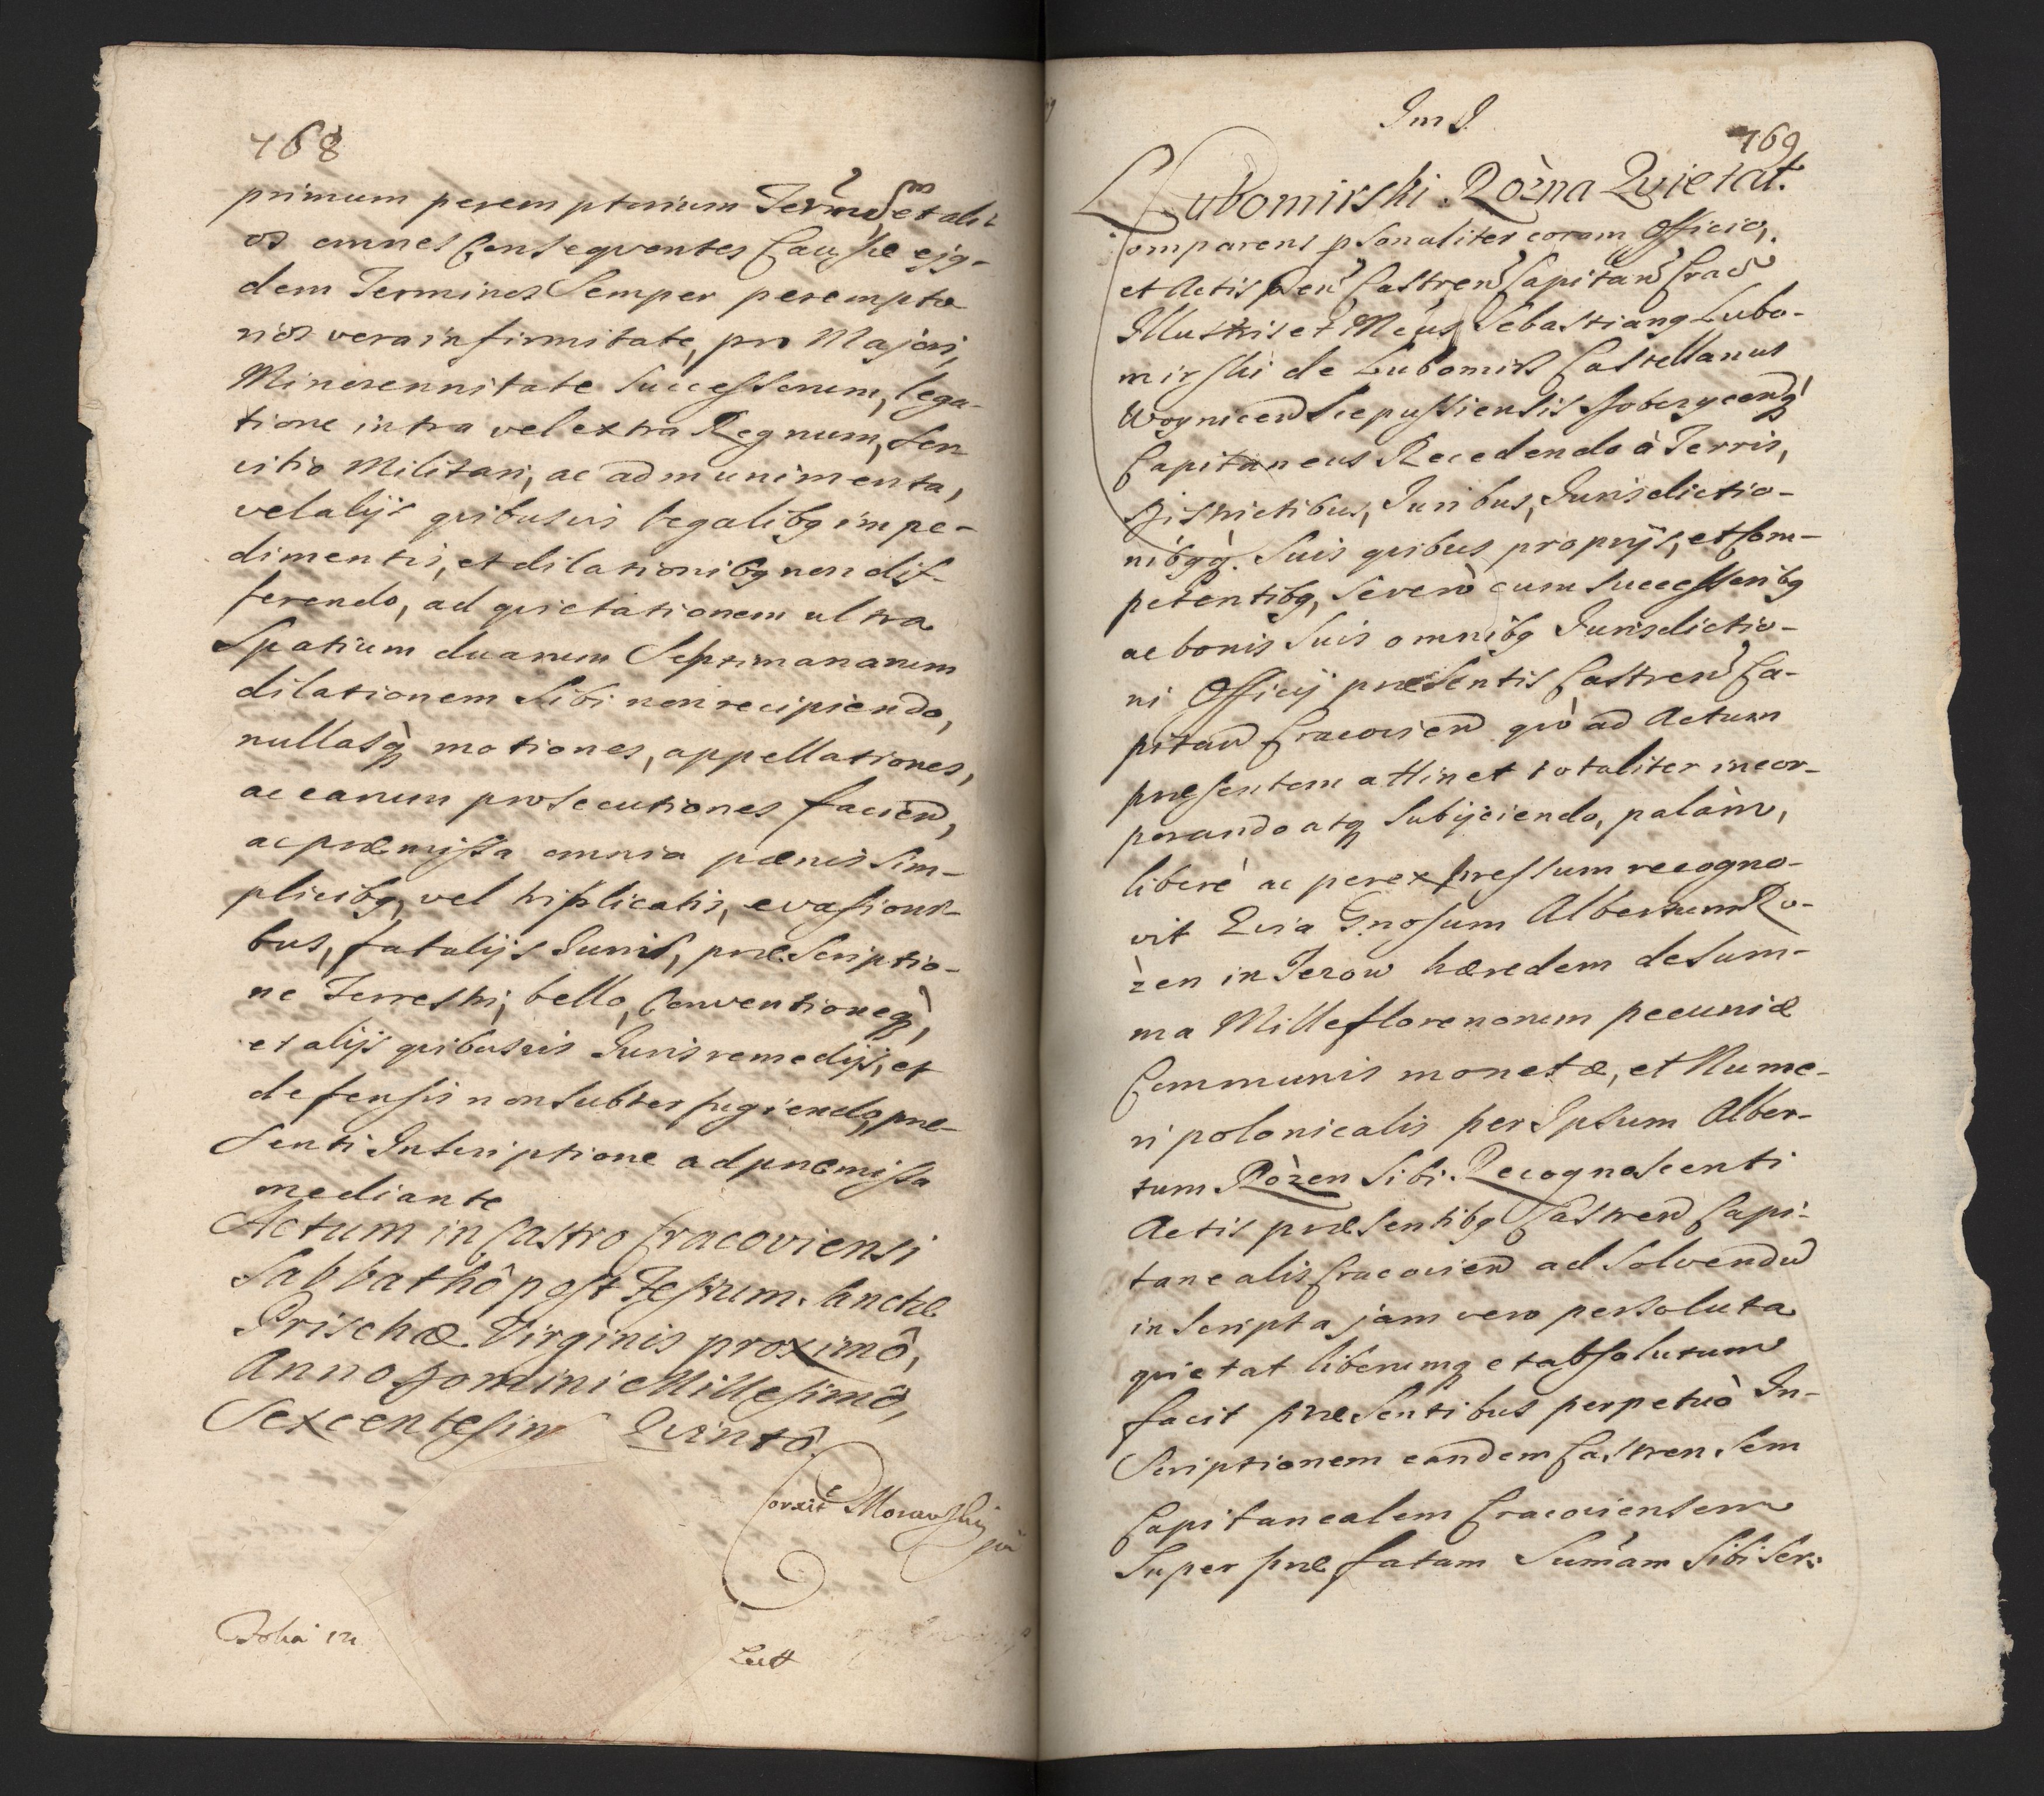 768
primum peremptorium Termũ et ali-
os omnes Consequentes Causæ ejq-
dem Terminos Semper perempto
rios vera infirmitate, pro Majori,
Minorennitate Successorum, lega-
tione intra vel extra Regnum, Ser
vitio Militari, ac ad munimenta,
vel alijs quibusvis legalibq impe-
dimentis, et dilationibq non dif-
ferendo, ad quietationem ultra
Spatium duarum Septimanarum
dilationem Sibi non recipiendo,
nullasq motiones, appellationes,
ac earum prosecutiones facien,
ac præmissa omnia pænis Sim-
plicibq, vel triplicatis, evasioni-
bus, fatalijs Juris, præscriptio-
ne Terrestri, bello, Conventioneq,
et alijs quibusvis Juris remedijs, et
defensis non Subterfugiendo, præ-
senti Inscriptione ad præmissa
mediante
Actum in Castro Cracoviensi
Sabbathô post Festum Sanctæ
Prischæ Virginis proximô,
Anno Domini Millesimô,
Sexcentesim Qvintô
Corxit Moravski
Folia 12
Lect
Ind.
769
Lubomirski Rożna Qvietat.
Comparens psonaliter coram Officio,
et Actis pñen Castren Capitan Crac
Illustris et Mcus Sebastianq Lubo-
mirski de Lubomirz Castellanus
Woynicen Scepusiensis Dobczycenq
Capitaneus Recedendo à Terris,
Districtibus, Juribus, Jurisdictio-
nibqq. Suis quibus proprijs, et Com-
petentibq, Se verò cum Successoribq
ac bonis Suis omnibq Jurisdictio-
ni Officij præsentis Castren Ca-
pitan Cracovien quò ad Actum
præsentem attinet totaliter incor-
porando atq Subijciendo, palàm,
liberè ac per expressum recogno-
vit Qvia Gnosum Albertum Ro-
żen in Jezow hæredem de Sum-
ma Mille florenorum pecuniæ
Communis monetæ, et Nume-
ri polonicalis per Ipsum Alber-
tum Rożen Sibi Recognoscenti
Actis præsentibq Castren Capi-
tanealis Cracovien ad Solvendũ
inscripta jam vero persoluta
quietat liberumq et absolutum
facit præsentibus perpetuò In-
scriptionem eandem Castrensem
Capitanealem Cracoviensem
Super præfatam Sumam Sibi Ser-